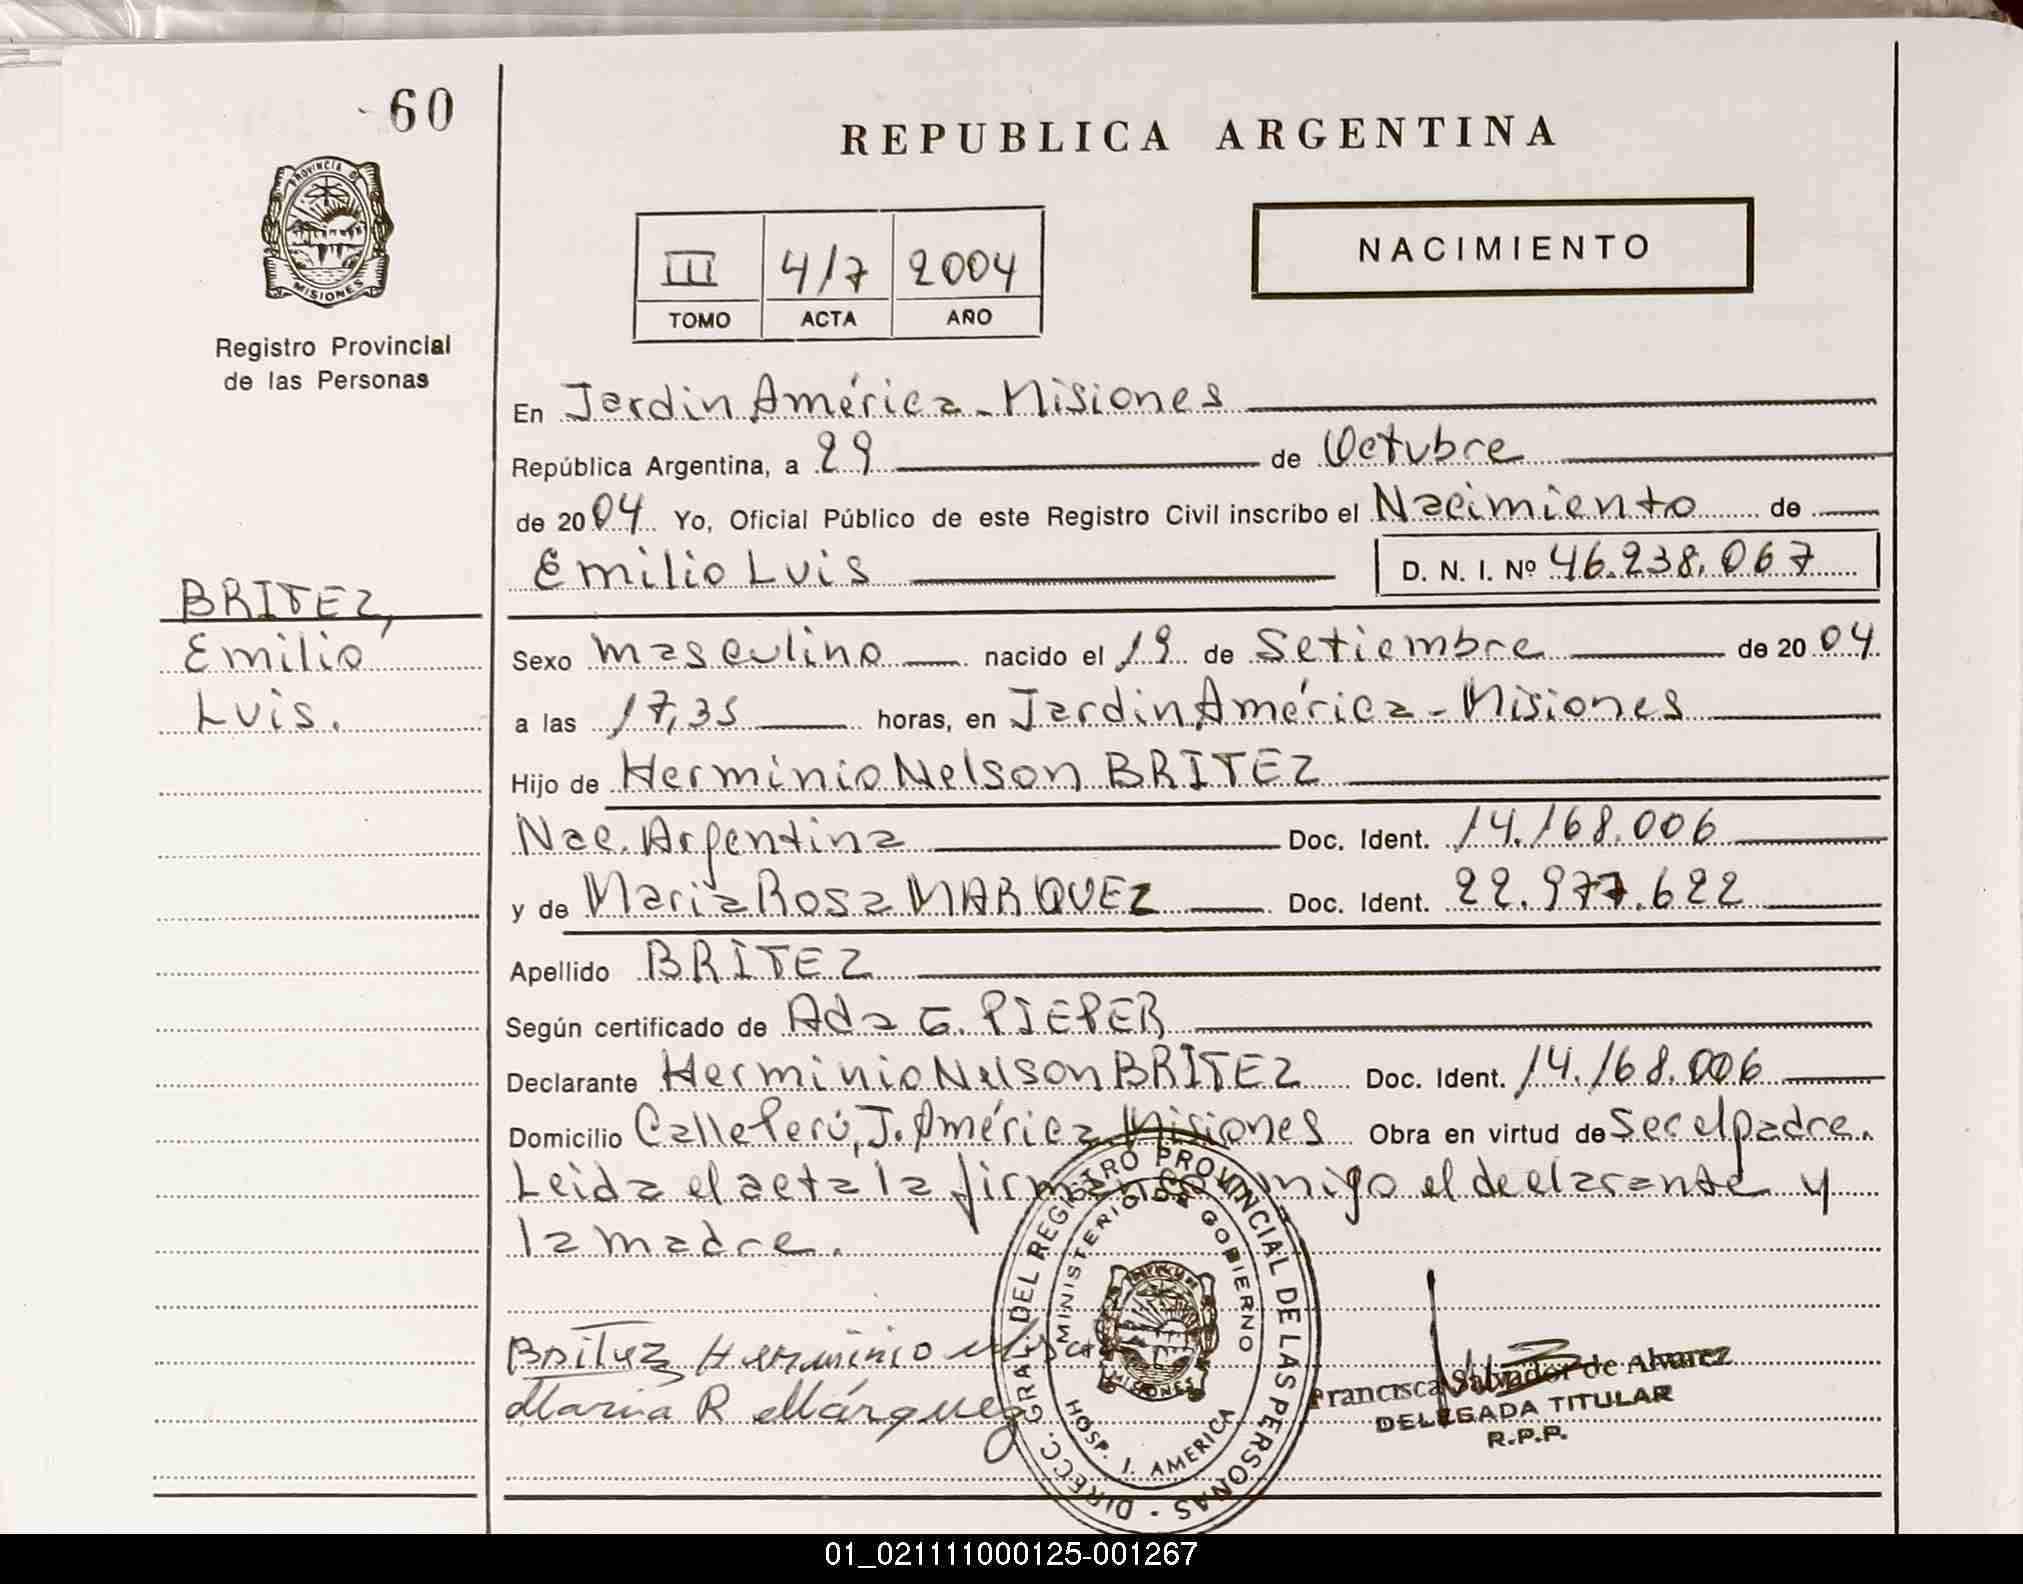 60
REPUBLICA ARGENTINA
NACIMIENTO
III 4/7 2004
TOMO ACTA AÑO
PROVINCIA DE
MISIONES
Registro Provincial
de las Personas
En Jardin América - Misiones
República Argentina, a 29 de Octubre
de 2004 Yo, Oficial Público de este Registro Civil inscribo el Nacimiento de
Emilio Luis D. N. I. Nº 46.238.067
BRITEZ,
Emilio
Luis.
Sexo masculino nacido el 19 de Setiembre de 2004
a las 17,35 horas, en Jardin América - Misiones
Hijo de Herminio Nelson BRITEZ
Nac. Argentina Doc. Ident. 14.168.006
y de Maria Rosa MARQUEZ Doc. Ident. 22.977.622
Apellido BRITEZ
Según certificado de Ada G. PIEPER
Declarante Herminio Nelson BRITEZ Doc. Ident. 14.168.006
Domicilio Calle Perú, J. América Misiones Obra en virtud de Ser el padre.
Leida el acta la firman conmigo el declarante y
la madre.
DIRECC. GRAL. DEL REGISTRO PROVINCIAL DE LAS PERSONAS -
MINISTERIO DE GOBIERNO
MISIONES
HOSP. J. AMERICA
Britez Herminio
Maria R Márquez
Francisca Salvador de Alvarez
DELEGADA TITULAR
R.P.P.
01_021111000125-001267